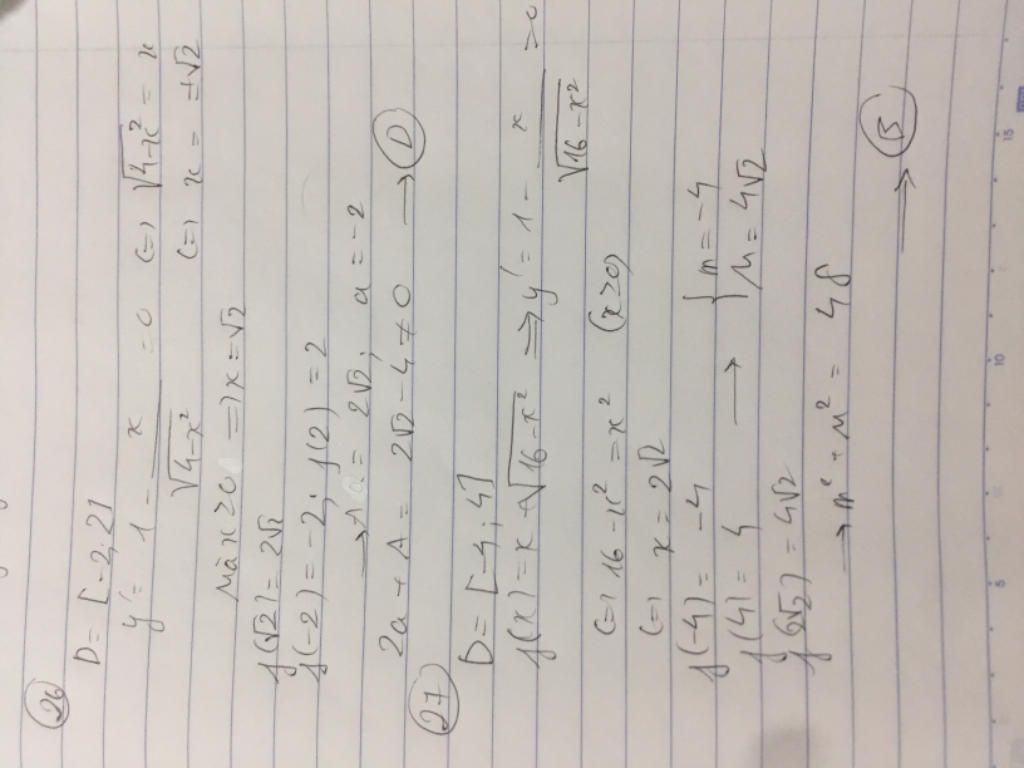 26
D = [-2,2]
y' = 1 - x/√(4-x²) = 0 (=) √(4-x²) = x
(=) x = ±√2
Mà x ≥ 0 => x = √2
f(√2) = 2√2
f(-2) = -2; f(2) = 2
→ A = 2√2; a = -2
2a + A = 2√2 - 4 ≠ 0 → D
27
D = [-4; 4]
f(x) = x + √(16-x²) => y' = 1 - x/√(16-x²) = 0
(=) 16 - x² = x² (x≥0)
(=) x = 2√2
f(-4) = -4
f(4) = 4 → { m = -4
f(2√2) = 4√2 M = 4√2
→ m² + M² = 48
→ B